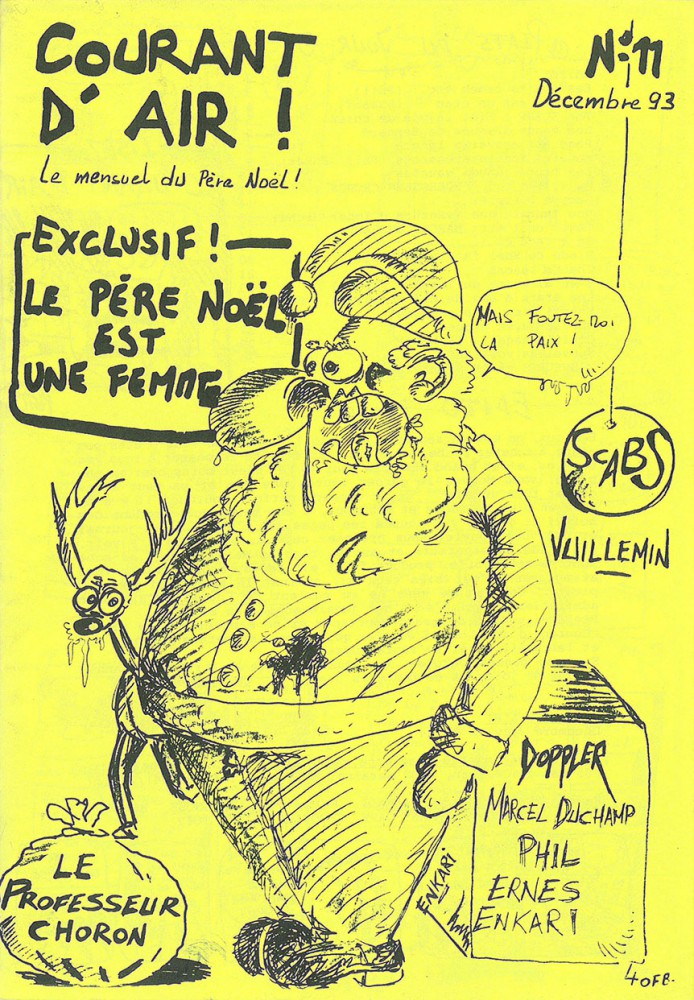 COURANT
D'AIR !
Le mensuel du Père Noël !
N°11
Décembre 93
EXCLUSIF !
LE PÉRE NOËL
EST
UNE FEMME
MAIS FOUTEZ-MOI
LA PAIX !
SCABS
VUILLEMIN
DOPPLER
MARCEL DUCHAMP
PHIL
ERNES
ENKARI
ENKARI
LE
PROFESSEUR
CHORON
4 OFB.